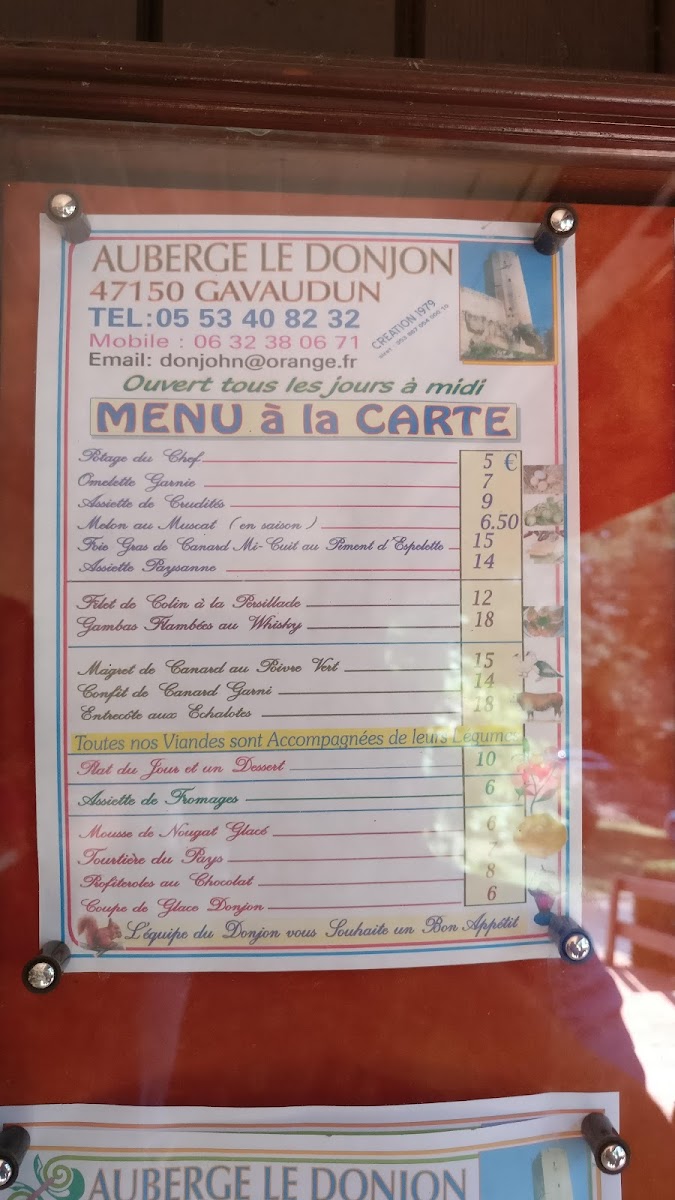 AUBERGE LE DONJON
47150 GAVAUDUN
TEL:05 53 40 82 32
Mobile : 06 32 38 06 71
CREATION 1979
Email: donjohn@orange.fr
Ouvert tous les jours à midi
MENU à la CARTE
Potage du Chef 5 €
Omelette Garnie 7
Assiette de Crudités 9
Melon au Muscat (en saison) 6.50
Foie Gras de Canard Mi-Cuit au Piment d'Espelette 15
Assiette Paysanne 14
Filet de Colin à la Persillade 12
Gambas Flambées au Whisky 18
Magret de Canard au Poivre Vert 15
Confit de Canard Garni 14
Entrecôte aux Echalotes 18
Toutes nos Viandes sont Accompagnées de leurs Légumes
Plat du Jour et un Dessert 10
Assiette de Fromages 6
Mousse de Nougat Glacé 6
Tourtière du Pays 7
Profiteroles au Chocolat 8
Coupe de Glace Donjon 6
L'équipe du Donjon vous Souhaite un Bon Appétit
AUBERGE LE DONJON